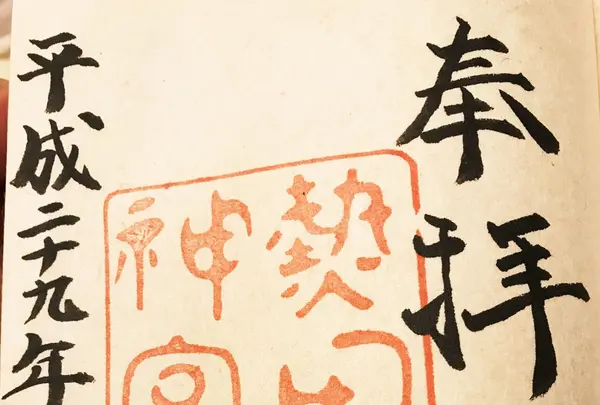 奉拝
熱
神
平成二十九年